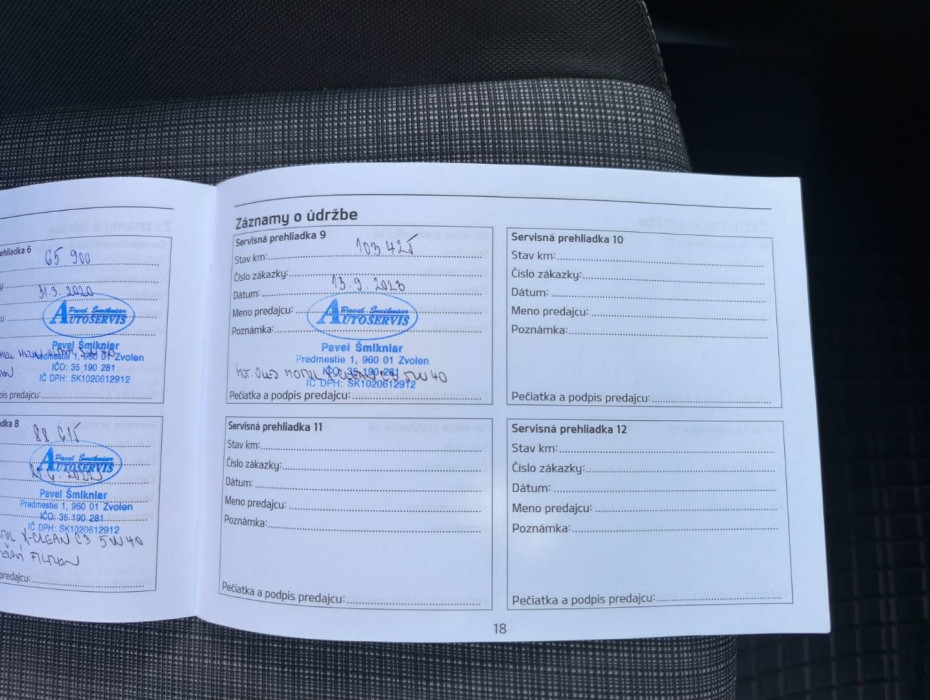 ehliadka 6
65 900
31.3.2020
Pavel Šmikniar
AUTOSERVIS
Pavel Šmikniar
Predmestie 1, 960 01 Zvolen
IČO: 35 190 281
IČ DPH: SK1020612912
pis predajcu:
dka 8
88 615
Pavel Šmikniar
AUTOSERVIS
Pavel Šmikniar
Predmestie 1, 960 01 Zvolen
IČO: 35 190 281
IČ DPH: SK1020612912
X-CLEAN C3 5W40
predajcu:
Záznamy o údržbe
Servisná prehliadka 9
Stav km: 103 425
Číslo zákazky:
Dátum: 13.9.2023
Meno predajcu:
Pavel Šmikniar
AUTOSERVIS
Poznámka:
Pavel Šmikniar
Predmestie 1, 960 01 Zvolen
IČO: 35 190 281
MOT. OLEJ MOTUL 5W40
IČ DPH: SK1020612912
Pečiatka a podpis predajcu:
Servisná prehliadka 10
Stav km:
Číslo zákazky:
Dátum:
Meno predajcu:
Poznámka:
Pečiatka a podpis predajcu:
Servisná prehliadka 11
Stav km:
Číslo zákazky:
Dátum:
Meno predajcu:
Poznámka:
Pečiatka a podpis predajcu:
Servisná prehliadka 12
Stav km:
Číslo zákazky:
Dátum:
Meno predajcu:
Poznámka:
Pečiatka a podpis predajcu:
18